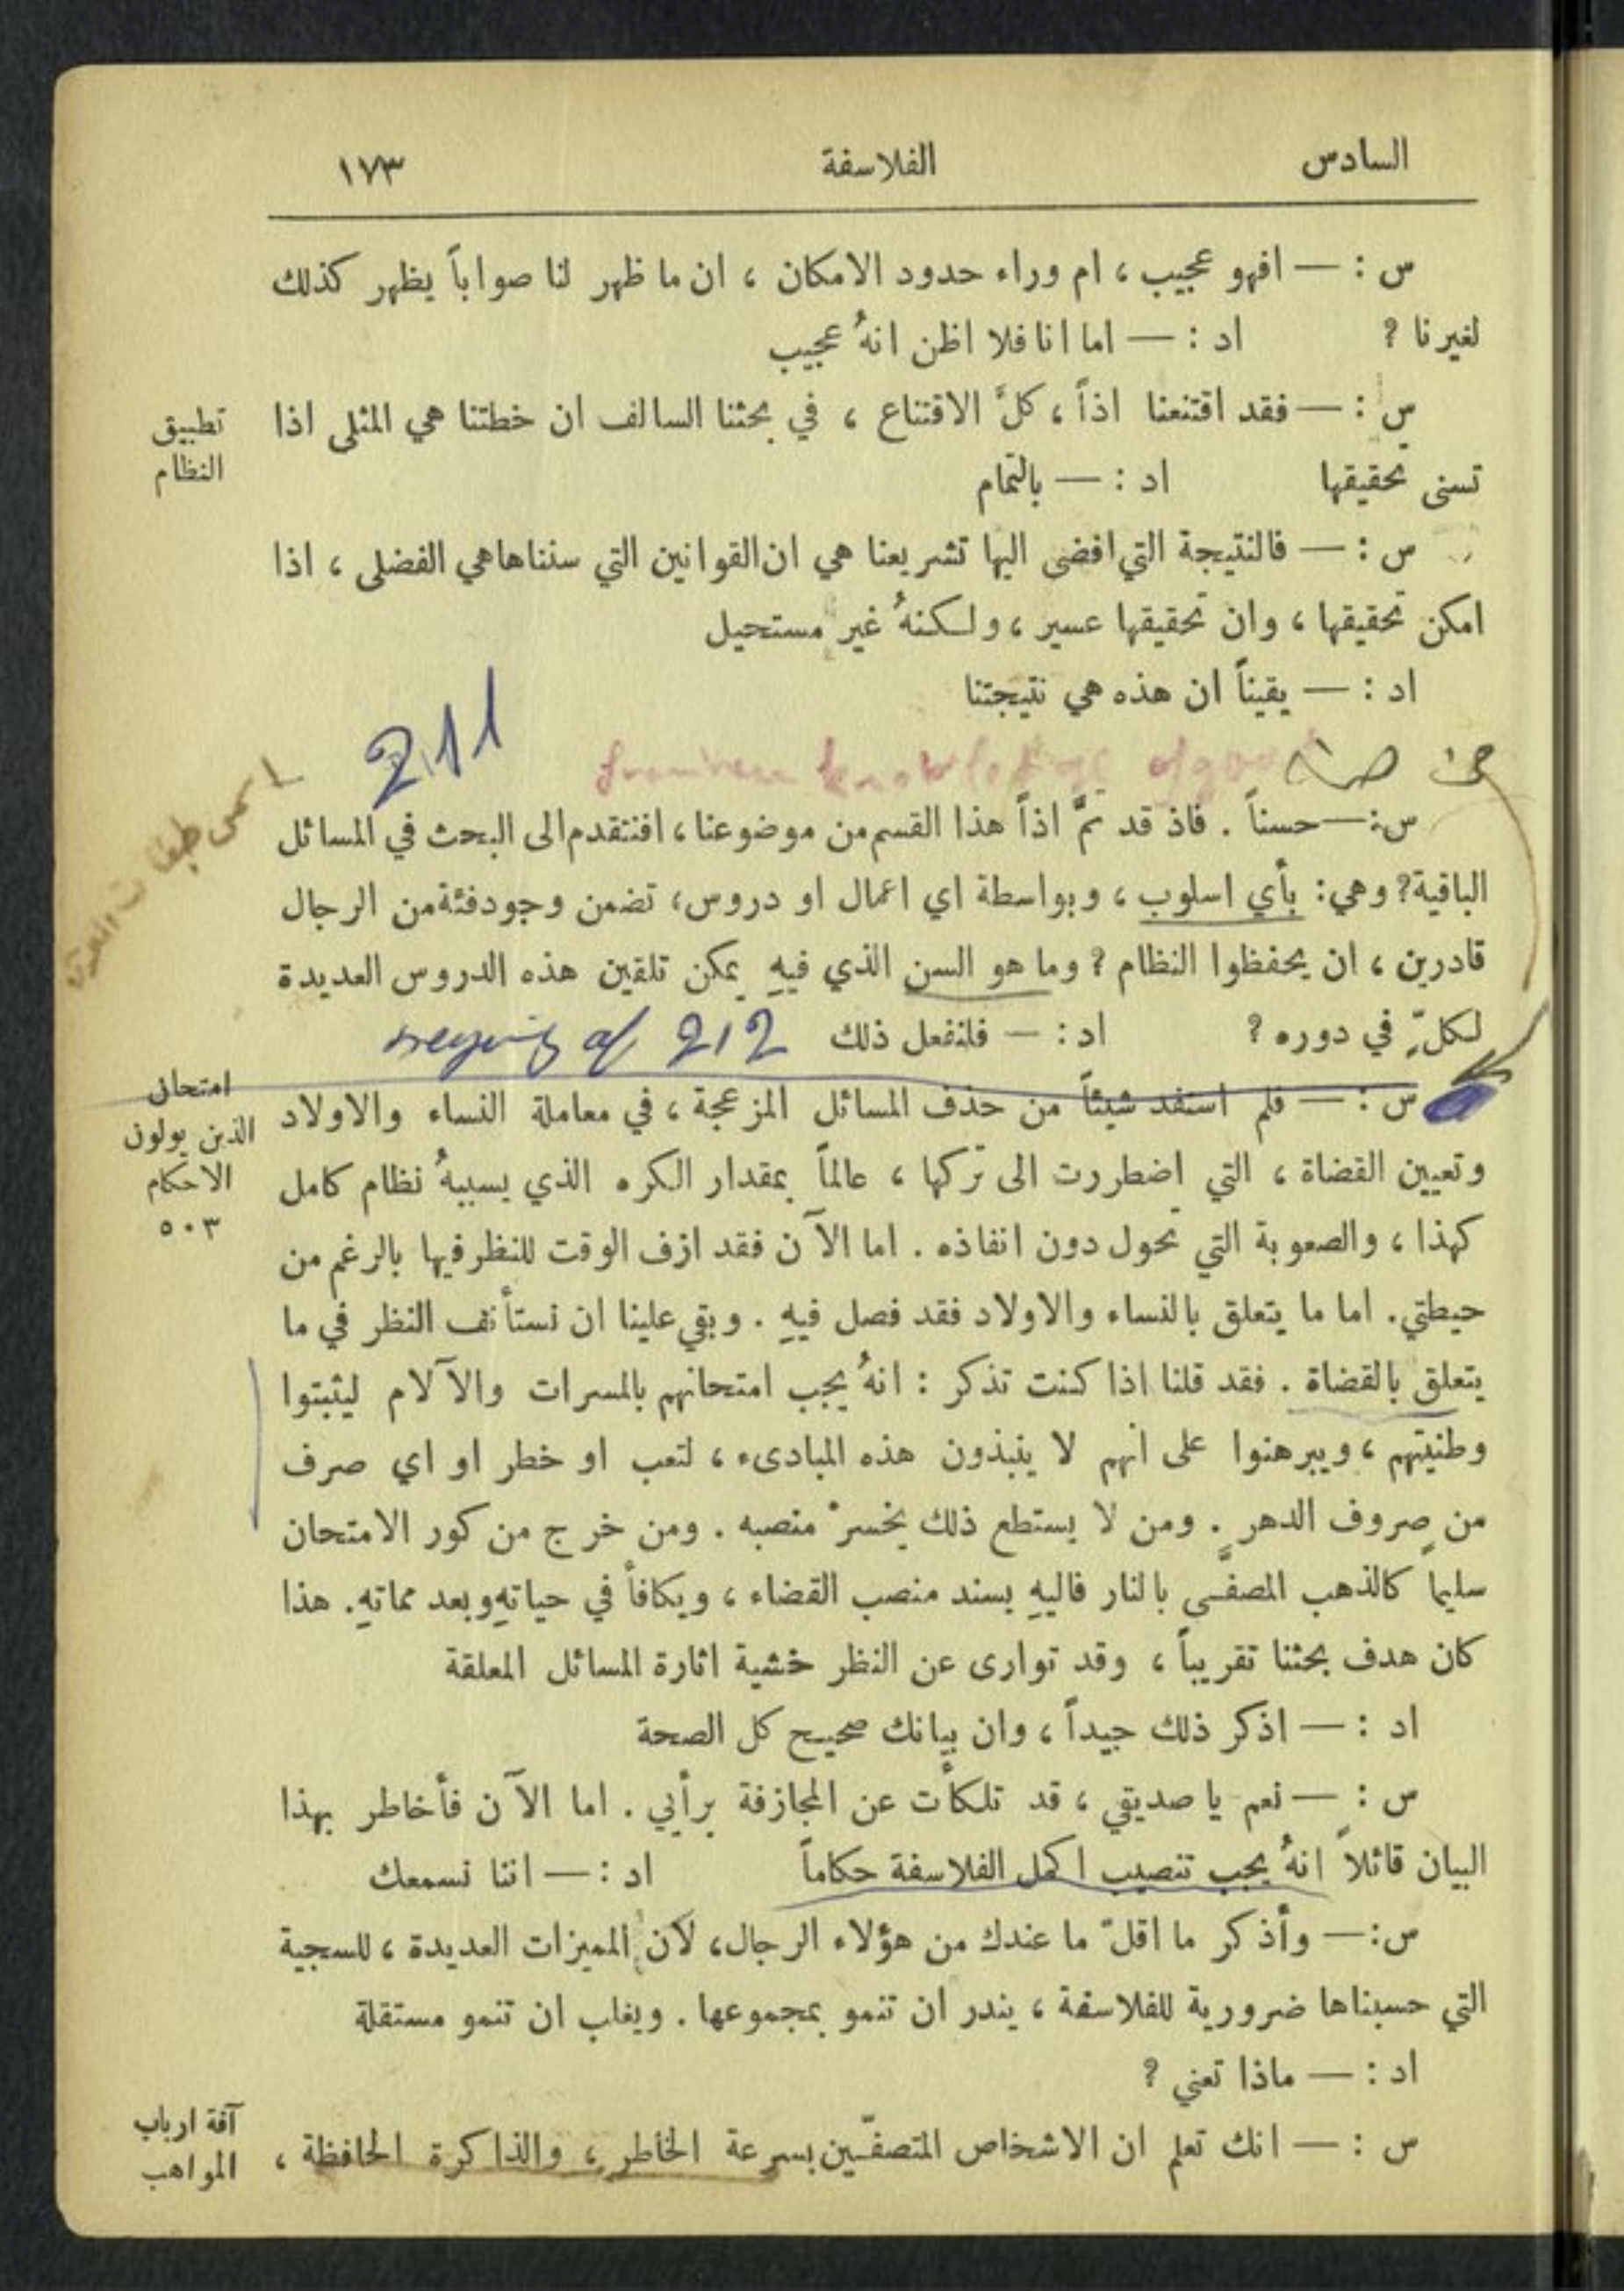 السادس الفلاسفة ١٧٣
س : — افهو عجيب ، ام وراء حدود الامكان ، ان ما ظهر لنا صواباً يظهر كذلك
لغيرنا ? اد : — اما انا فلا اظن انهُ عجيب
س : — فقد اقتنعنا اذاً ، كلَّ الاقتناع ، في بحثنا السالف ان خطتنا هي المثلى اذا
تطبيق
النظام
تسنى تحقيقها اد : — بالتمام
س : — فالنتيجة التي افضى اليها تشريعنا هي ان القوانين التي سنناها هي الفضلى ، اذا
امكن تحقيقها ، وان تحقيقها عسير ، ولكنهُ غير مستحيل
اد : — يقيناً ان هذه هي نتيجتنا
211
knowledge of good
س : — حسناً . فاذ قد تمَّ اذاً هذا القسم من موضوعنا ، افنتقدم الى البحث في المسائل
الباقية ? وهي : بأي اسلوب ، وبواسطة اي اعمال او دروس ، تضمن وجود فئة من الرجال
قادرين ، ان يحفظوا النظام ? وما هو السن الذي فيهِ يمكن تلقين هذه الدروس العديدة
لكلٍّ في دوره ? اد : — فلنفعل ذلك 212
امتحان
الذين يولون
الاحكام
٥٠٣
س : — فلم استفد شيئاً من حذف المسائل المزعجة ، في معاملة النساء والاولاد
وتعيين القضاة ، التي اضطررت الى تركها ، عالماً بمقدار الكره الذي يسببهُ نظام كامل
كهذا ، والصعوبة التي تحول دون انفاذه . اما الآن فقد ازف الوقت للنظر فيها بالرغم من
حيطتي . اما ما يتعلق بالنساء والاولاد فقد فصل فيهِ . وبقي علينا ان نستأنف النظر في ما
يتعلق بالقضاة . فقد قلنا اذا كنت تذكر : انهُ يجب امتحانهم بالمسرات والآلام ليثبتوا
وطنيتهم ، ويبرهنوا على انهم لا ينبذون هذه المبادىء ، لتعب او خطر او اي صرف
من صروف الدهر . ومن لا يستطع ذلك يخسرْ منصبه . ومن خرج من كور الامتحان
سليماً كالذهب المصفَّى بالنار فاليهِ يسند منصب القضاء ، ويكافأ في حياتهِ وبعد مماتهِ . هذا
كان هدف بحثنا تقريباً ، وقد توارى عن النظر خشية اثارة المسائل المعلقة
اد : — اذكر ذلك جيداً ، وان بيانك صحيح كل الصحة
س : — نعم يا صديقي ، قد تلكأت عن المجازفة برأيي . اما الآن فأخاطر بهذا
البيان قائلاً انهُ يجب تنصيب اكمل الفلاسفة حكاماً اد : — اننا نسمعك
س : — وأذكر ما اقلّ ما عندك من هؤلاء الرجال ، لأن المميزات العديدة ، للسجية
التي حسبناها ضرورية للفلاسفة ، يندر ان تنمو بمجموعها . ويغلب ان تنمو مستقلة
اد : — ماذا تعني ?
آفة ارباب
المواهب
س : — انك تعلم ان الاشخاص المتصفّين بسرعة الخاطر ، والذاكرة الحافظة ،